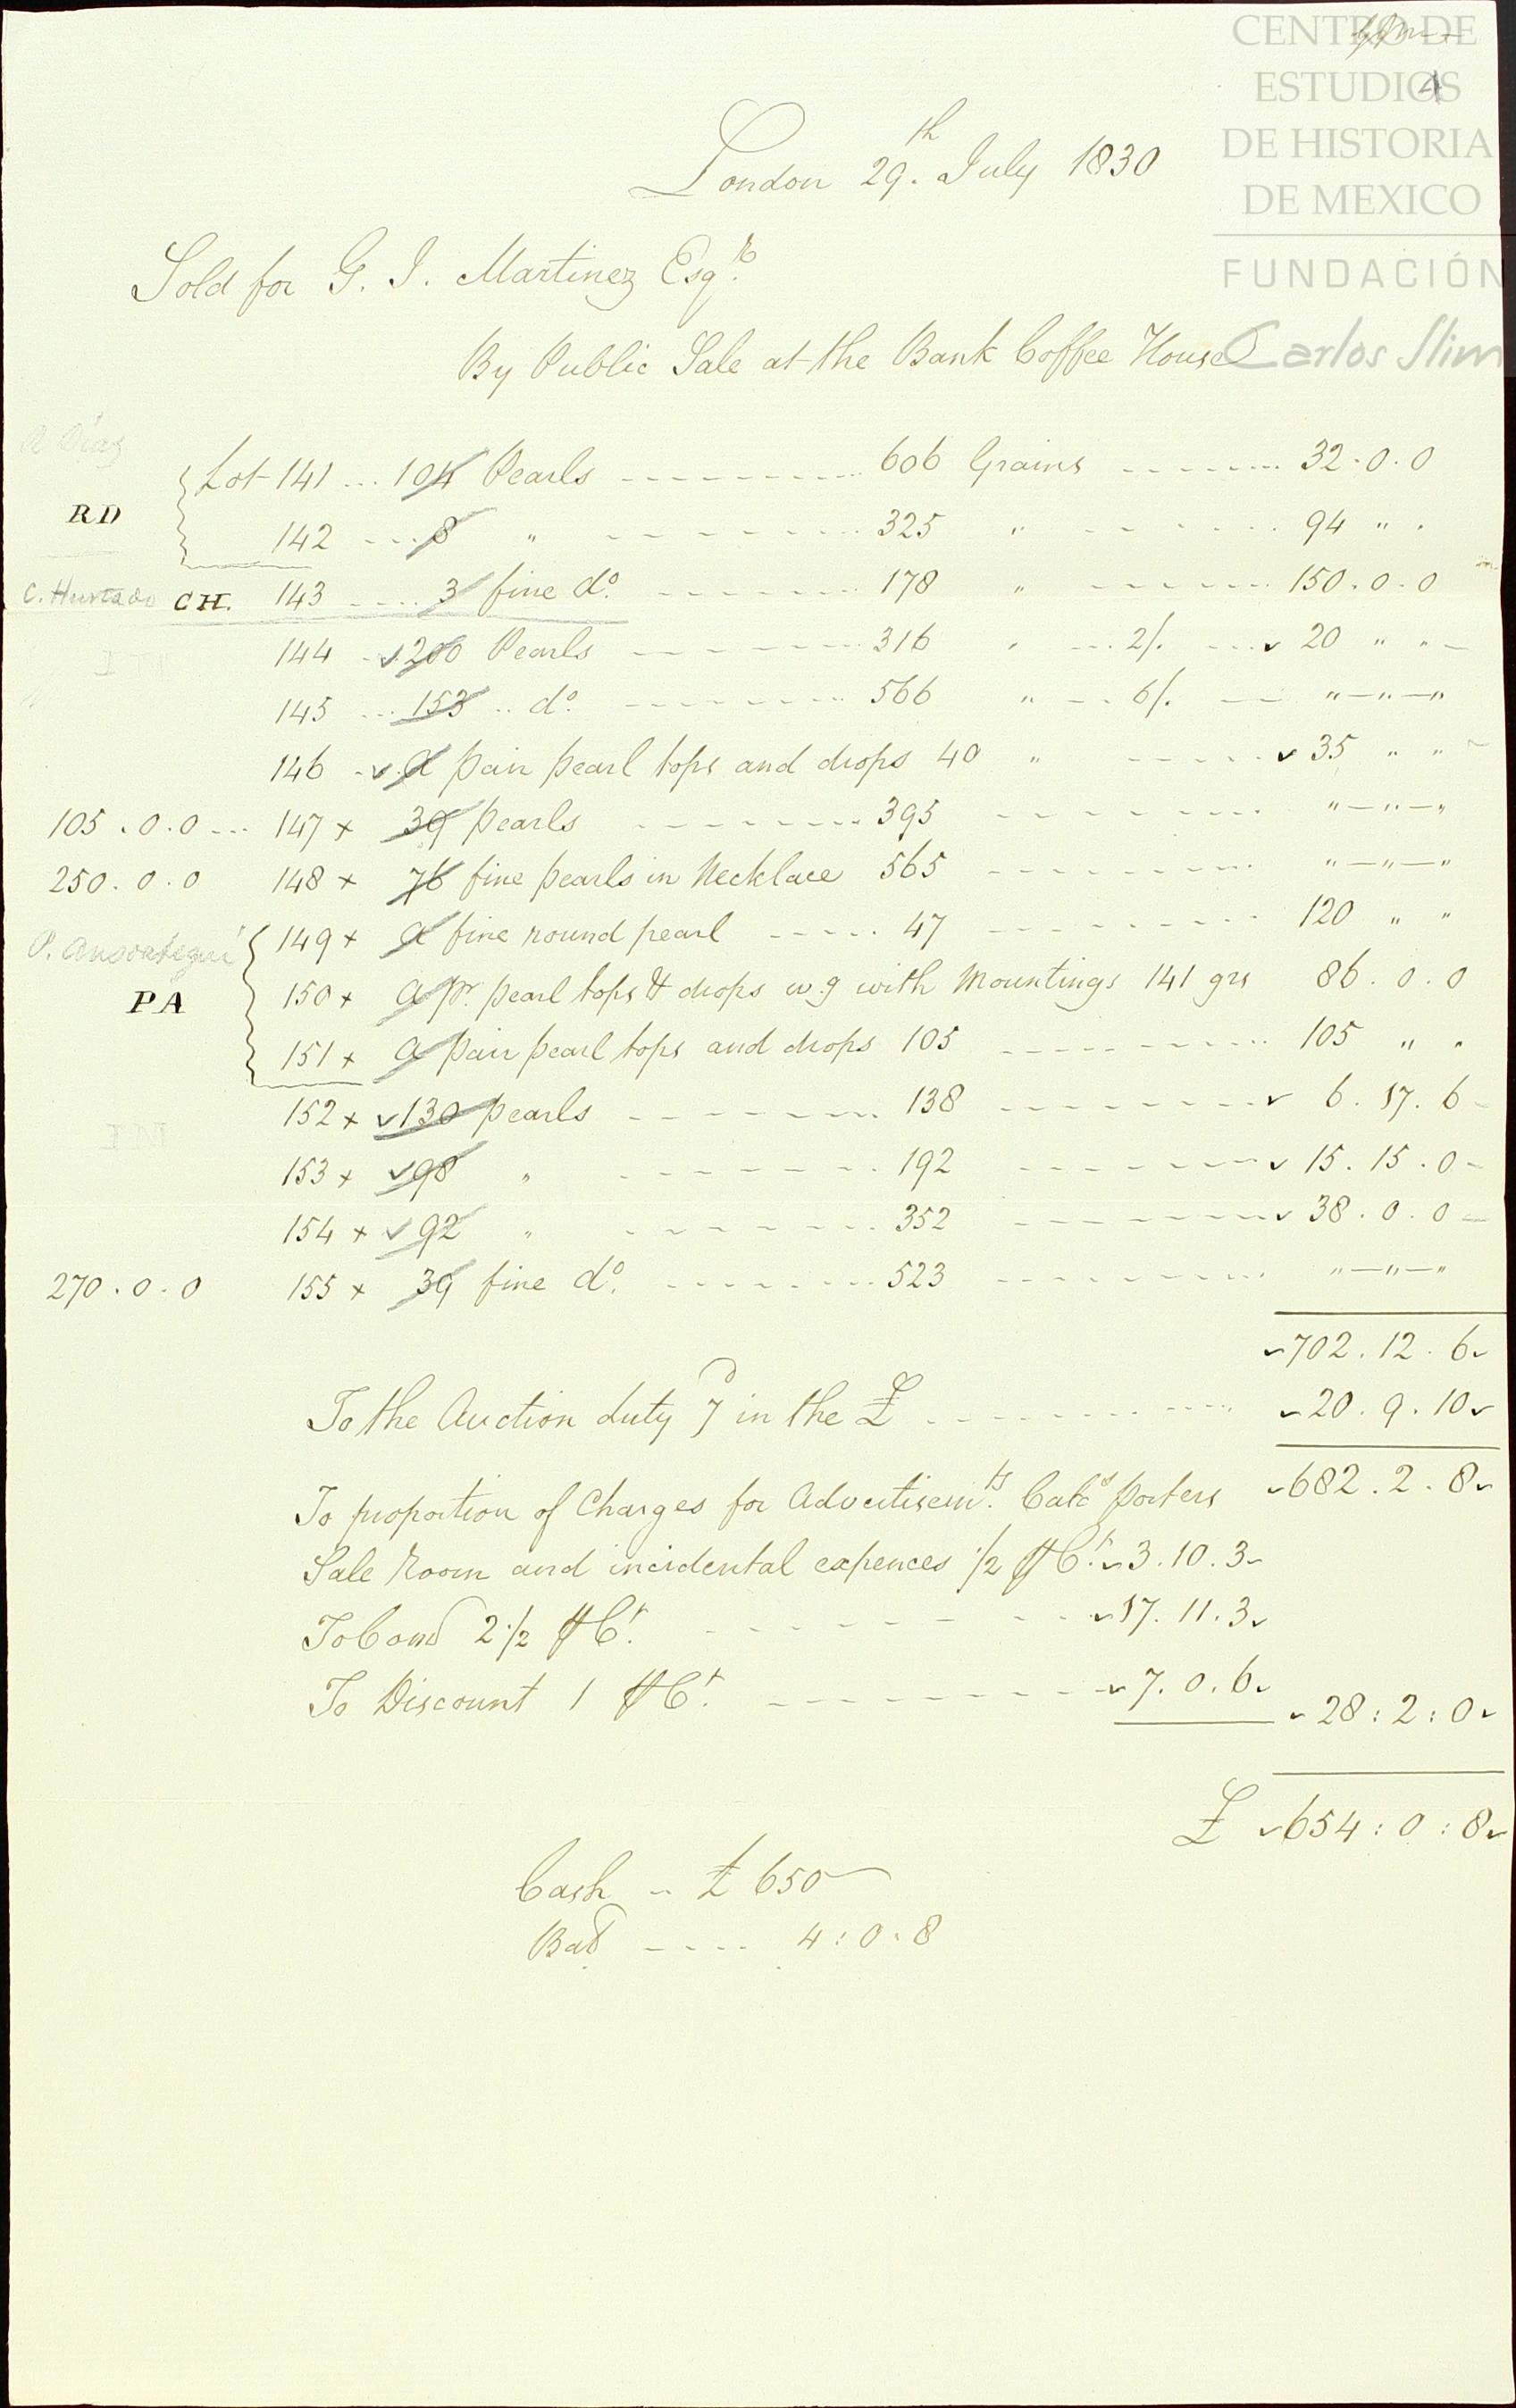 CENTRO DE
ESTUDIOS
DE HISTORIA
DE MEXICO
FUNDACIÓN
Carlos Slim
4
London 29.th July 1830
Sold for G. I. Martinez Esqre.
By Public Sale at the Bank Coffee House
R Diaz
RD
Lot 141 ... 104 Pearls ---------- 606 Grains ------- 32.0.0
142 ---- 8 " -------- 325 " ------- 94 " .
C. Hurtado CH. 143 ..... 3 fine do. -------- 178 " ------- 150.0.0
144 200 Pearls -------- 316 " ... 2/. ... 20 " "
145 ... 153 .. do. -------- 566 " -- 6/. -- "—"—"
146 a pair pearl tops and drops 40 " ------ 35 " "
105.0.0 ... 147 x 39 pearls -------- 395 -------- "—"—"
250.0.0 148 x 76 fine pearls in Necklace 565 -------- "—"—"
P. Ansoategui 149 x a fine round pearl ----- 47 -------- 120 " "
PA 150 x a pr. pearl tops & drops w.g with Mountings 141 grs 86.0.0
151 x a pair pearl tops and drops 105 --------- 105 " "
152 x 130 pearls -------- 138 -------- 6.17.6
153 x 98 " -------- 192 -------- 15.15.0
154 x 92 " -------- 352 -------- 38.0.0
270.0.0 155 x 39 fine do. -------- 523 -------- "—"—"
702.12.6
To the Auction duty 7d in the £ ---------- 20.9.10
682.2.8
To proportion of Charges for Advertisemts. Cats porters
Sale Room and incidental expences 1/2 ⅌ Ct. 3.10.3
To Comd 2 1/2 ⅌ Ct. -------- 17.11.3
To Discount 1 ⅌ Ct. --------- 7.0.6
28:2:0
£ 654:0:8
Cash -- £ 650
Bad ---- 4:0:8